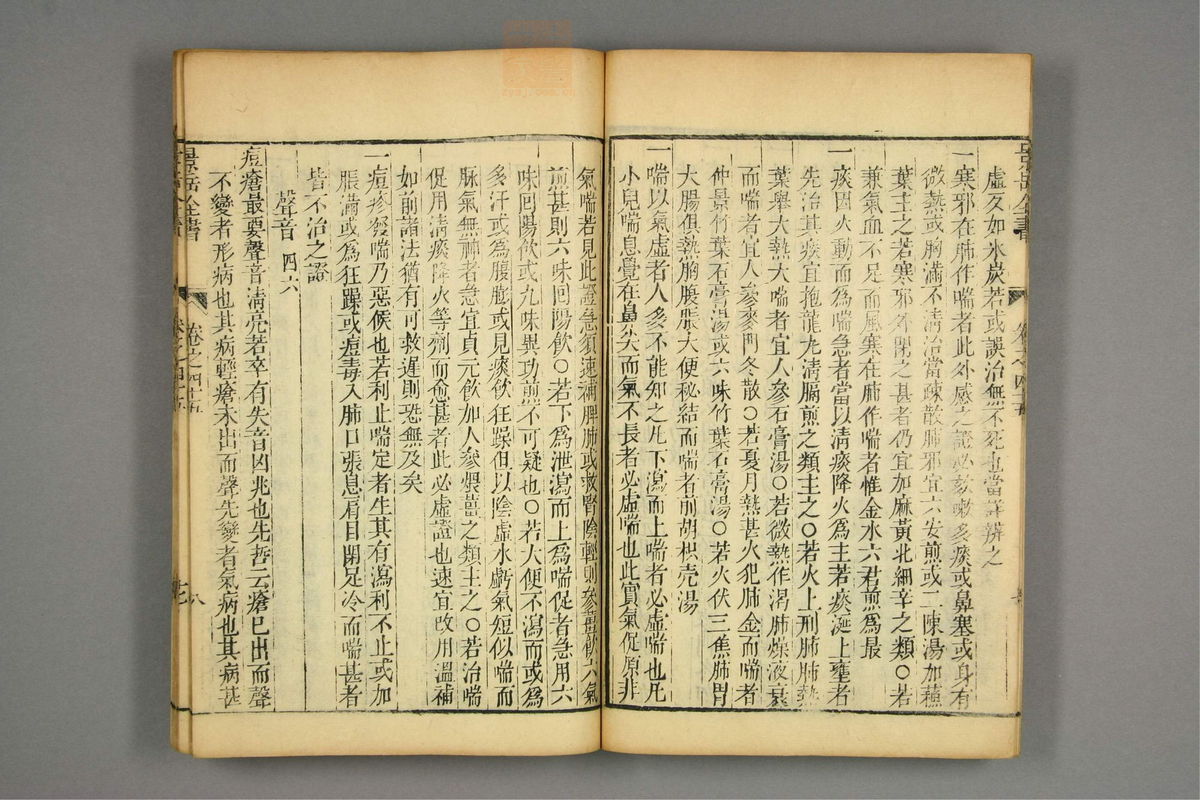 虛久如氷炭若或誤治無不死也當詳辨之
一寒邪在肺作喘者此外感之證必咳嗽多痰或鼻塞或身有
微熱或胸滿不清治當疎散肺邪宜六安煎或二陳湯加蘇
葉主之若寒邪外閉之甚者仍宜加麻黃北細辛之類○若
兼氣血不足而風寒在肺作喘者惟金水六君煎爲最
一痰因火動而爲喘急者當以清痰降火爲主若痰涎上壅者
先治其痰宜抱龍丸清膈煎之類主之○若火上刑肺肺熱
葉舉大熱大喘者宜人參石膏湯○若微熱作渴肺燥液衰
而喘者宜人參麥門冬散○若夏月熱甚火犯肺金而喘者
仲景竹葉石膏湯或六味竹葉石膏湯○若火伏三焦肺胃
大腸俱熱胸腹脹大便秘結而喘者前胡枳壳湯
一喘以氣虛者人多不能知之凡下瀉而上喘者必虛喘也凡
小兒喘息覺在鼻尖大而氣不長者必虛喘也此實氣促原非
氣喘若見此證急須速補脾肺或救腎陰輕則參薑飲六氣
煎甚則六味回陽飲○若下爲泄瀉而上爲喘促者急用六
味回陽飲或九味異功煎不可疑也○若大便不瀉而或爲
多汗或爲腹膨或見痰飲狂躁但以陰虛水虧氣短似喘而
脉氣無神者急宜貞元飲加人參煨薑之類主之○若治喘
促用清痰降火等劑而愈甚者此必虛證也速宜改用溫補
如前諸法猶有可救遲則恐無及矣
一痘疹發喘乃惡候也若利止喘定者生其有瀉利不止或加
脹滿或爲狂躁或痘毒入肺口張息肩目閉足冷而喘甚者
皆不治之證
聲音 四六
痘瘡最要聲音清亮若卒有失音凶兆也先哲云瘡已出而聲
不變者形病也其病輕瘡未出而聲先變者氣病也其病甚
景岳全書 卷之四十五 八